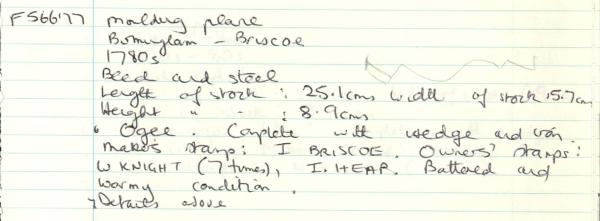 F566'77 Moulding plane
Birmingham - Briscoe
1780s
Beech and steel
Length of stock : 25.1cms width of stock : 5.7cm
Height " - : 8.9cms
" Ogee. Complete with wedge and iron.
Makers stamp: I BRISCOE. Owners' stamps:
W KNIGHT (7 times), I. HEAP. Battered and
wormy condition.
Details above